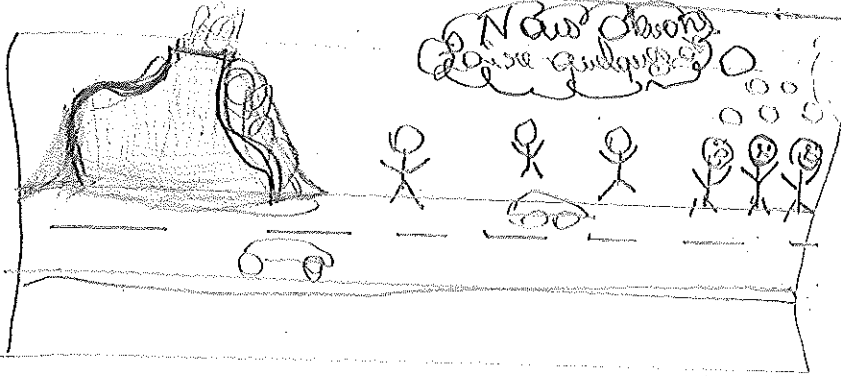 Nous devons
faire quelque